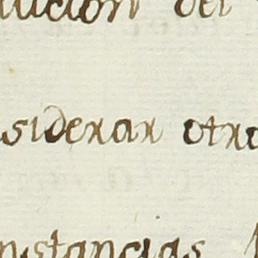 ucion del
siderar otro
nstancias